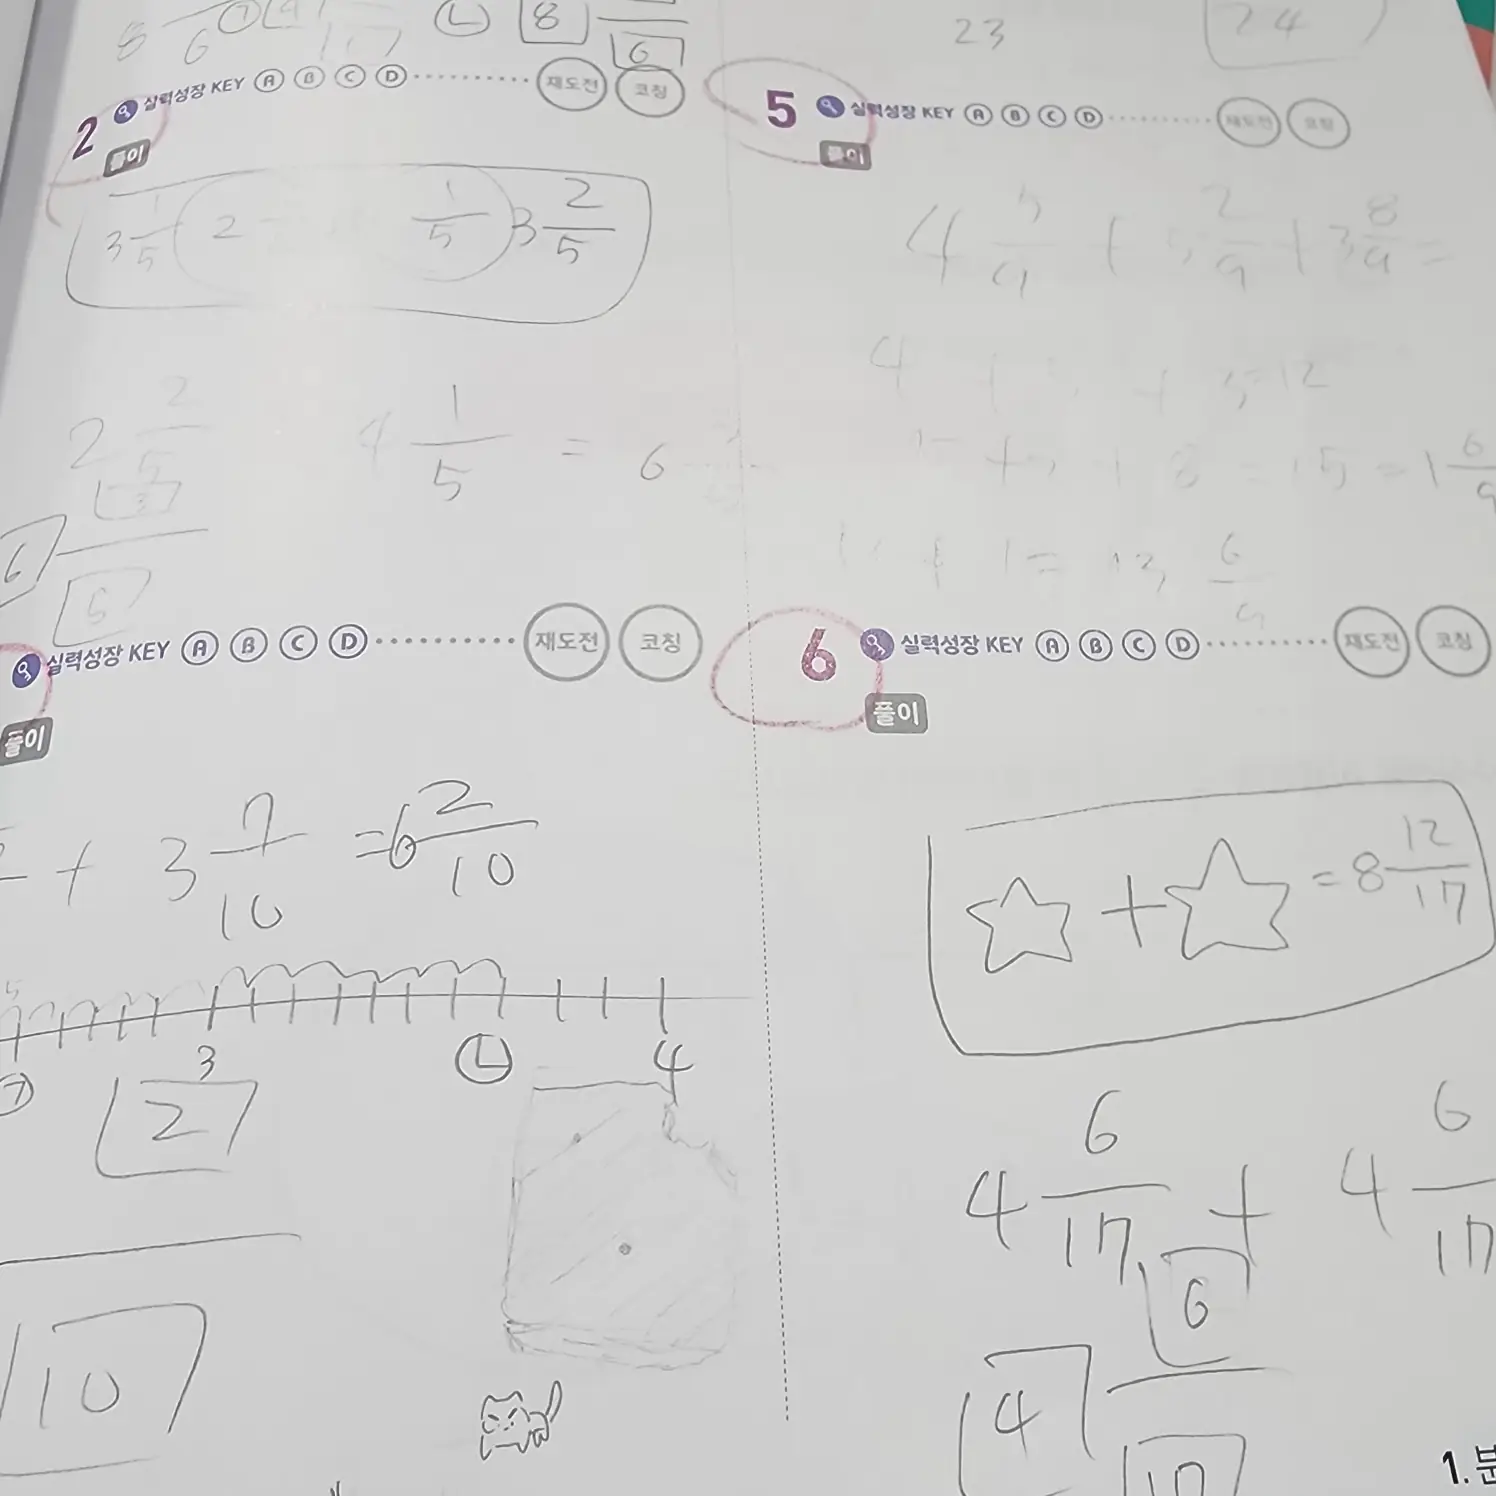 8 6 ㉠
㉡ 8 6
2 실력성장 KEY A B C D 재도전 코칭
풀이
3 1/5 2 1/5 3 2/5
2 2/5 4 1/5 = 6
6
5
실력성장 KEY A B C D 재도전 코칭
풀이
+ 3 7/10 = 6 2/10
3 ㉡ 4
㉠
2
10
23 24
5 실력성장 KEY A B C D 재도전 코칭
풀이
4 5/9 + 5 2/9 + 3 8/9 =
4 + + 3=12
+ 8 = 15 = 1 6/9
+ 1 = 13 6/9
6 실력성장 KEY A B C D 재도전 코칭
풀이
☆ + ☆ = 8 12/17
4 6/17 + 4 6/17
4 6/17
1. 분